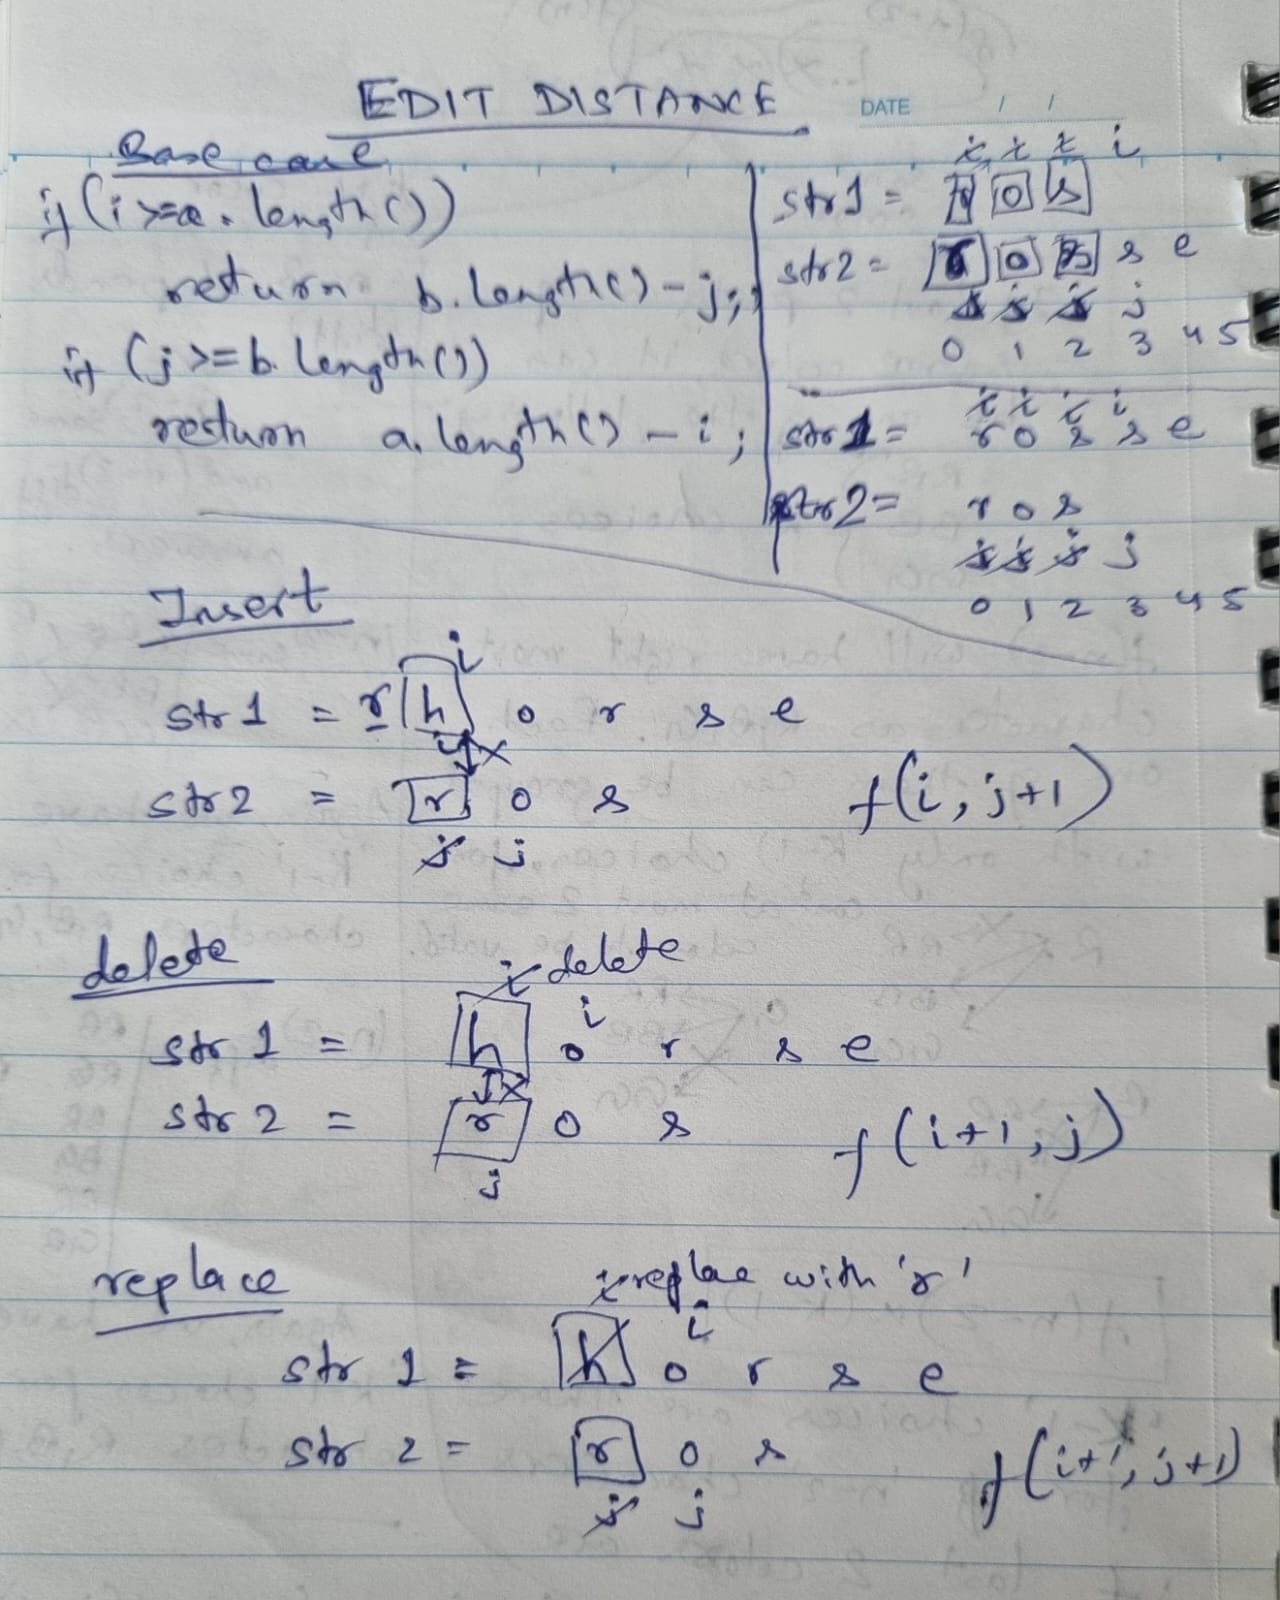 EDIT DISTANCE
DATE / /
Base case
if (i >= a.length())
return b.length() - j;
if (j >= b.length())
return a.length() - i;
i i i i
str1 = r o s
str2 = r o s s e
j j j j
0 1 2 3 4 5
i i i i
str1 = r o s s e
str2 = r o s
j j j j
0 1 2 3 4 5
Insert
i
str1 = r h o r s e
str2 = r o s f(i, j+1)
j j
delete
i delete
i
str 1 = h o r s e
str 2 = r o s f(i+1, j)
j
replace
i replae with 'r'
i
str 1 = h o r s e
str 2 = r o s f(i+1, j+1)
j j